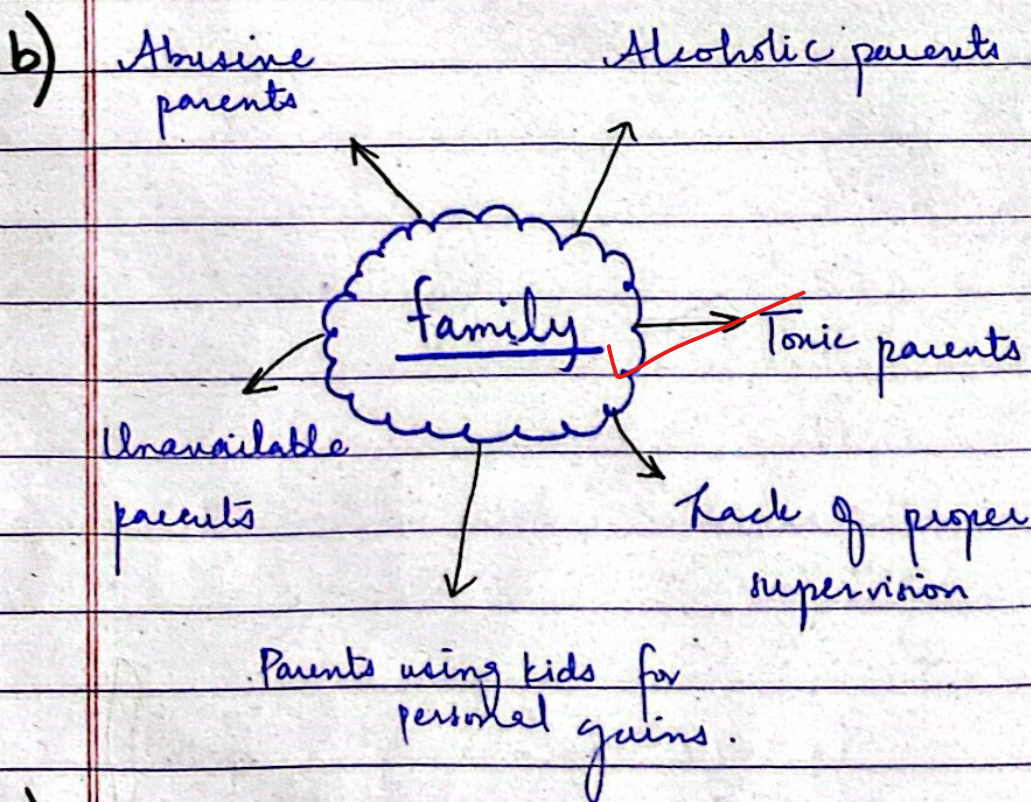 b)
Abusine
parents
Alcoholic parents
family
Tonic parents
Unavailable
parents
Lack of proper
supervision
Parents using kids for
personal gains.